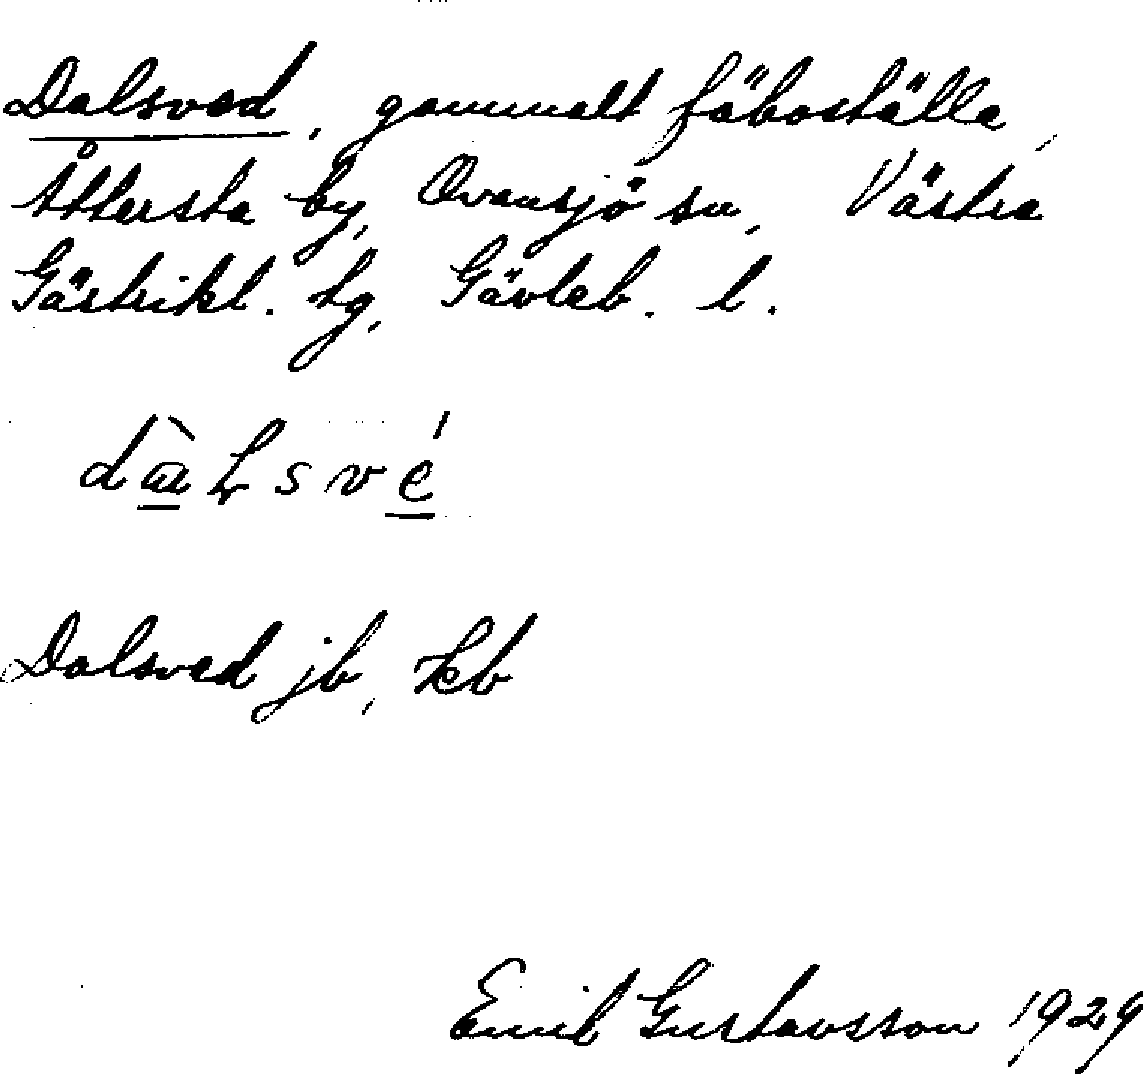 Dalsved, gammalt fäboställe,
Åttersta by, Ovansjö sn, Västra
Gästrikl. tg, Gävleb. l.
dàLsvé
Dalsved jb, kb
Emil Gustavsson 1929